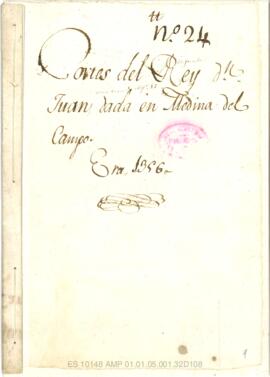 tt
nº. 24
Cortes del Rey dn.
Juan, dada en Medina del
Campo.
Era, 1356.
1
ES 10148 AMP 01.01.05.001.32D108